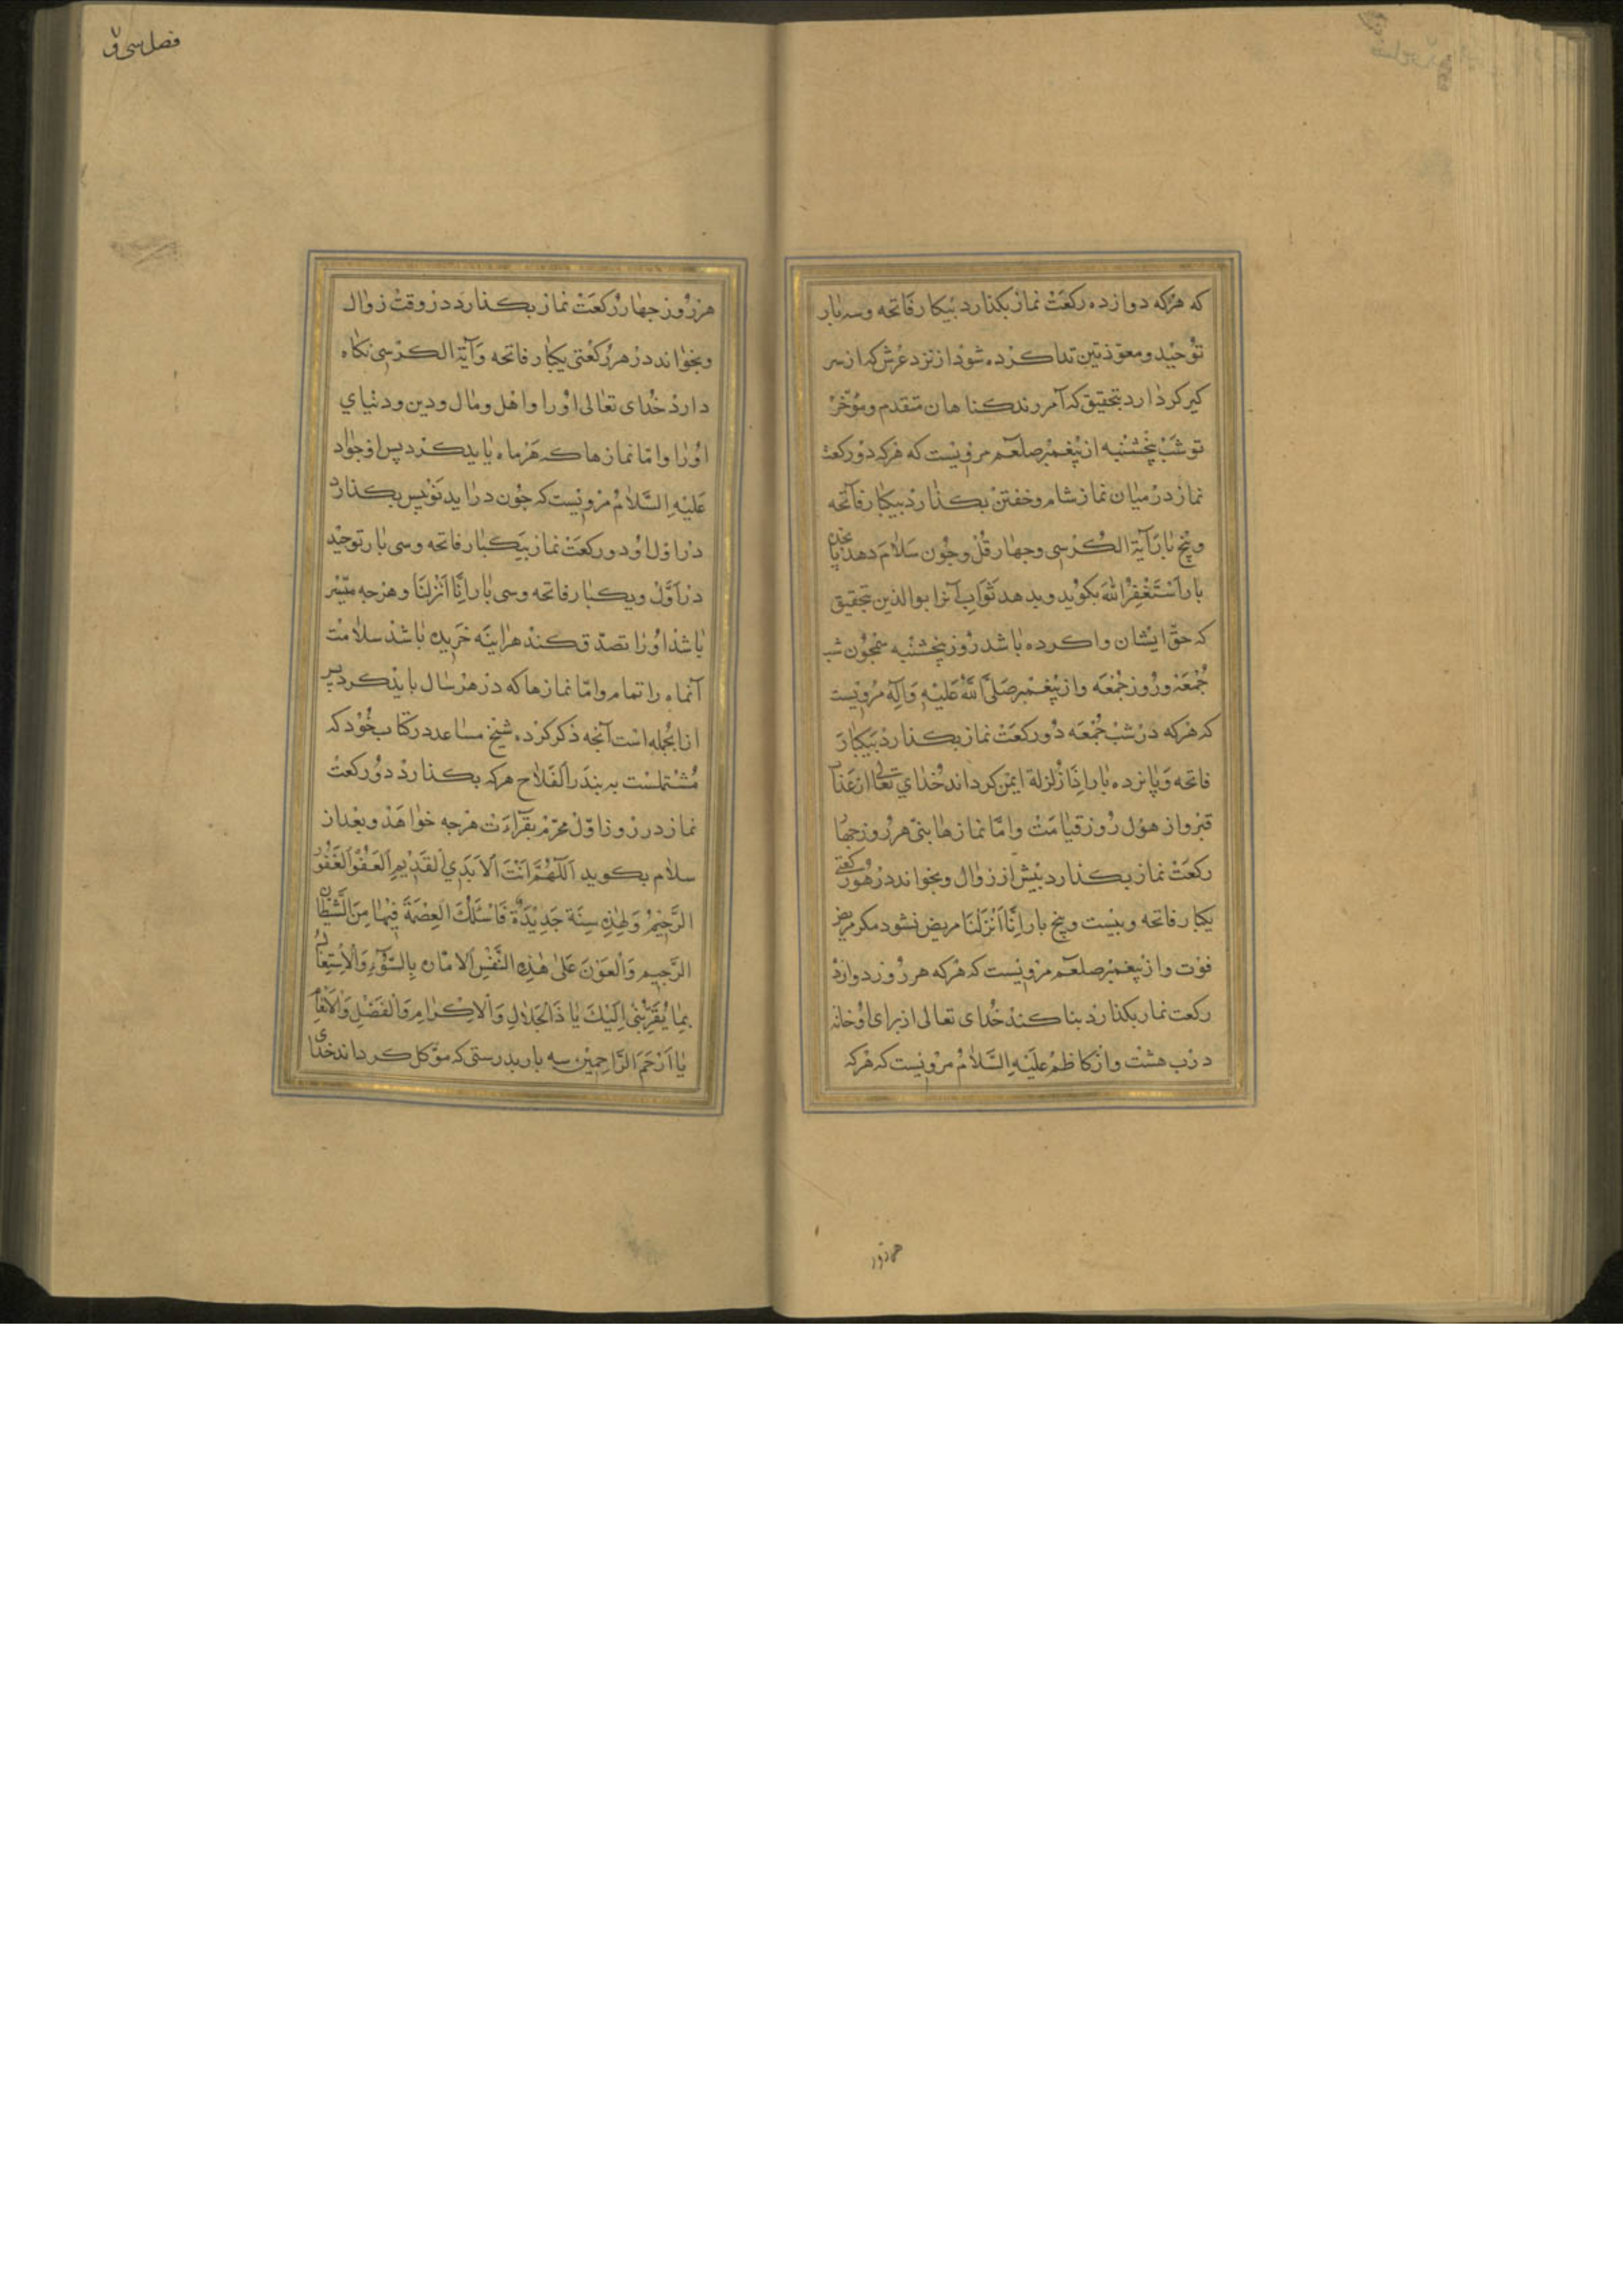 که هرکه دوازده رکعت نماز بکذارد بیکبار فاتحه وسه بار
توحید ومعوّذتین ندا کرده شود از نزد عرش که از سر
کیر کردار بتحقیق که آمرزیدند کناهان متقدم ومؤخر
تو شب پنجشنبه از پیغمبر صلعم مرویست که هرکه دو رکعت
نماز در میان نماز شام وخفتن بکذارد بیکبار فاتحه
وپنج بار آیة الکرسی وچهار قل وچون سلام دهد پانجده
بار استغفر الله بکوید وبدهد ثواب آنرا بوالدین بتحقیق
که حق ایشان وا کرده باشد روز پنجشنبه همچون شب
جمعه وروز جمعه واز پیغمبر صلّی الله علیه وآله مرویست
که هرکه در شب جمعه دو رکعت نماز بکذارد بیکبار
فاتحه وپانزده بار اذا زلزلة ایمن کرداند خدای تعالی از عذاب
قبر واز هول روز قیامت وامّا نمازها بنی هر روز چهار
رکعت نماز بکذارد بیش از زوال وبخواند در هر رکعتی
یکبار فاتحه وبیست وپنج بار انّا انزلنا مریض نشود مکر مرض
فوت واز پیغمبر صلعم مرویست که هرکه هر روز دوازده
رکعت نماز بکذارد بنا کند خدای تعالی از برای او خانه
در بهشت واز کاظم علیه السّلام مرویست که هرکه
هرروز
فصل سی و۷
هر روز چهار رکعت نماز بکذارد در وقت زوال
وبخواند در هر رکعتی یکبار فاتحه وآیة الکرسی نکاه
دارد خدای تعالی اورا واهل ومال ودین ودنیای
اورا وامّا نمازها که هر ماه باید کرد پس از جواد
علیه السّلام مرویست که چون دراید نو پس بکذارد
در اول او دو رکعت نماز بیکبار فاتحه وسی بار توحید
در اوّل ویکبار فاتحه وسی بار انّا انزلنا وهرچه میسّر
باشد اورا تصدّق کند هراینه خریده باشد سلامت
آنماه را تمام وامّا نمازها که در هر سال باید کرد پس
ازانجمله است آنچه ذکر کرده شیخ مساعد در کتاب خود که
مشتملست به بیدر الفلاح هرکه بکذارد دو رکعت
نماز در روز اوّل محرّم بقراءت هرچه خواهد وبعد از
سلام بکوید اللّهمّ انت الابدی القدیم العفوّ الغفور
الرّحیم وهذه سنة جدیدة فاسئلک العصمة فیها من الشّیطان
الرّجیم والعون علی هذه النّفس الامّارة بالسّوء والاشتغال
بما یقرّبنی الیک یا ذا الجلال والاکرام والفضل والانعام
یا ارحم الرّاحمین سه بار بدرستی که موکّل کرداند خدای